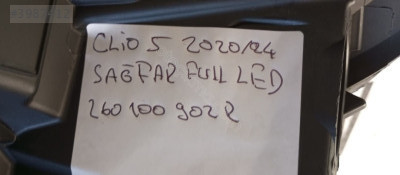 CLiO 5 2020/24
SAĞ FAR FULL LED
260 100 902 R